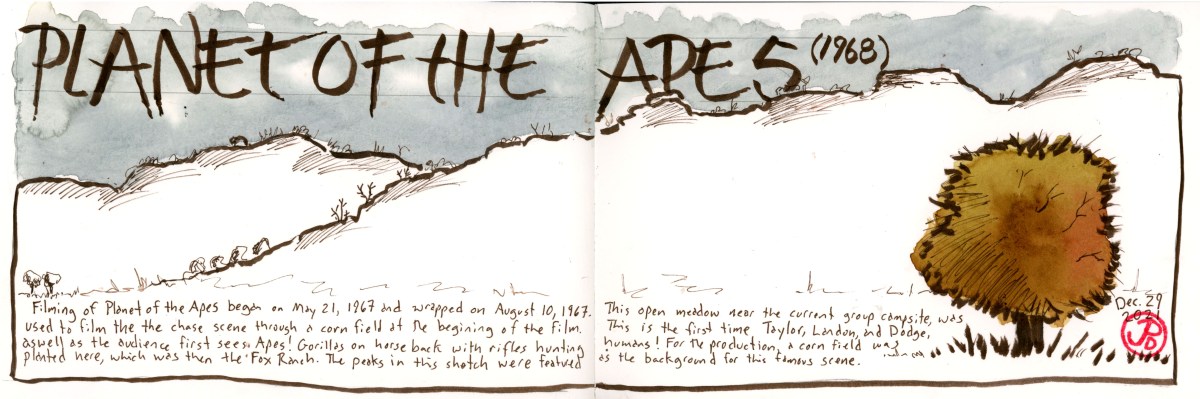 PLANET OF THE APES (1968)
Filming of Planet of the Apes began on May 21, 1967 and wrapped on August 10, 1967. This open meadow near the current group campsite, was
used to film the the chase scene through a corn field at the begining of the film. This is the first time, Taylor, Landon, and Dodge,
aswell as the audience first sees Apes! Gorillas on horse back with rifles hunting humans! For the production, a corn field was
planted here, which was then the Fox Ranch. The peaks in this sketch were featured as the background for this famous scene.
Dec. 29
2021